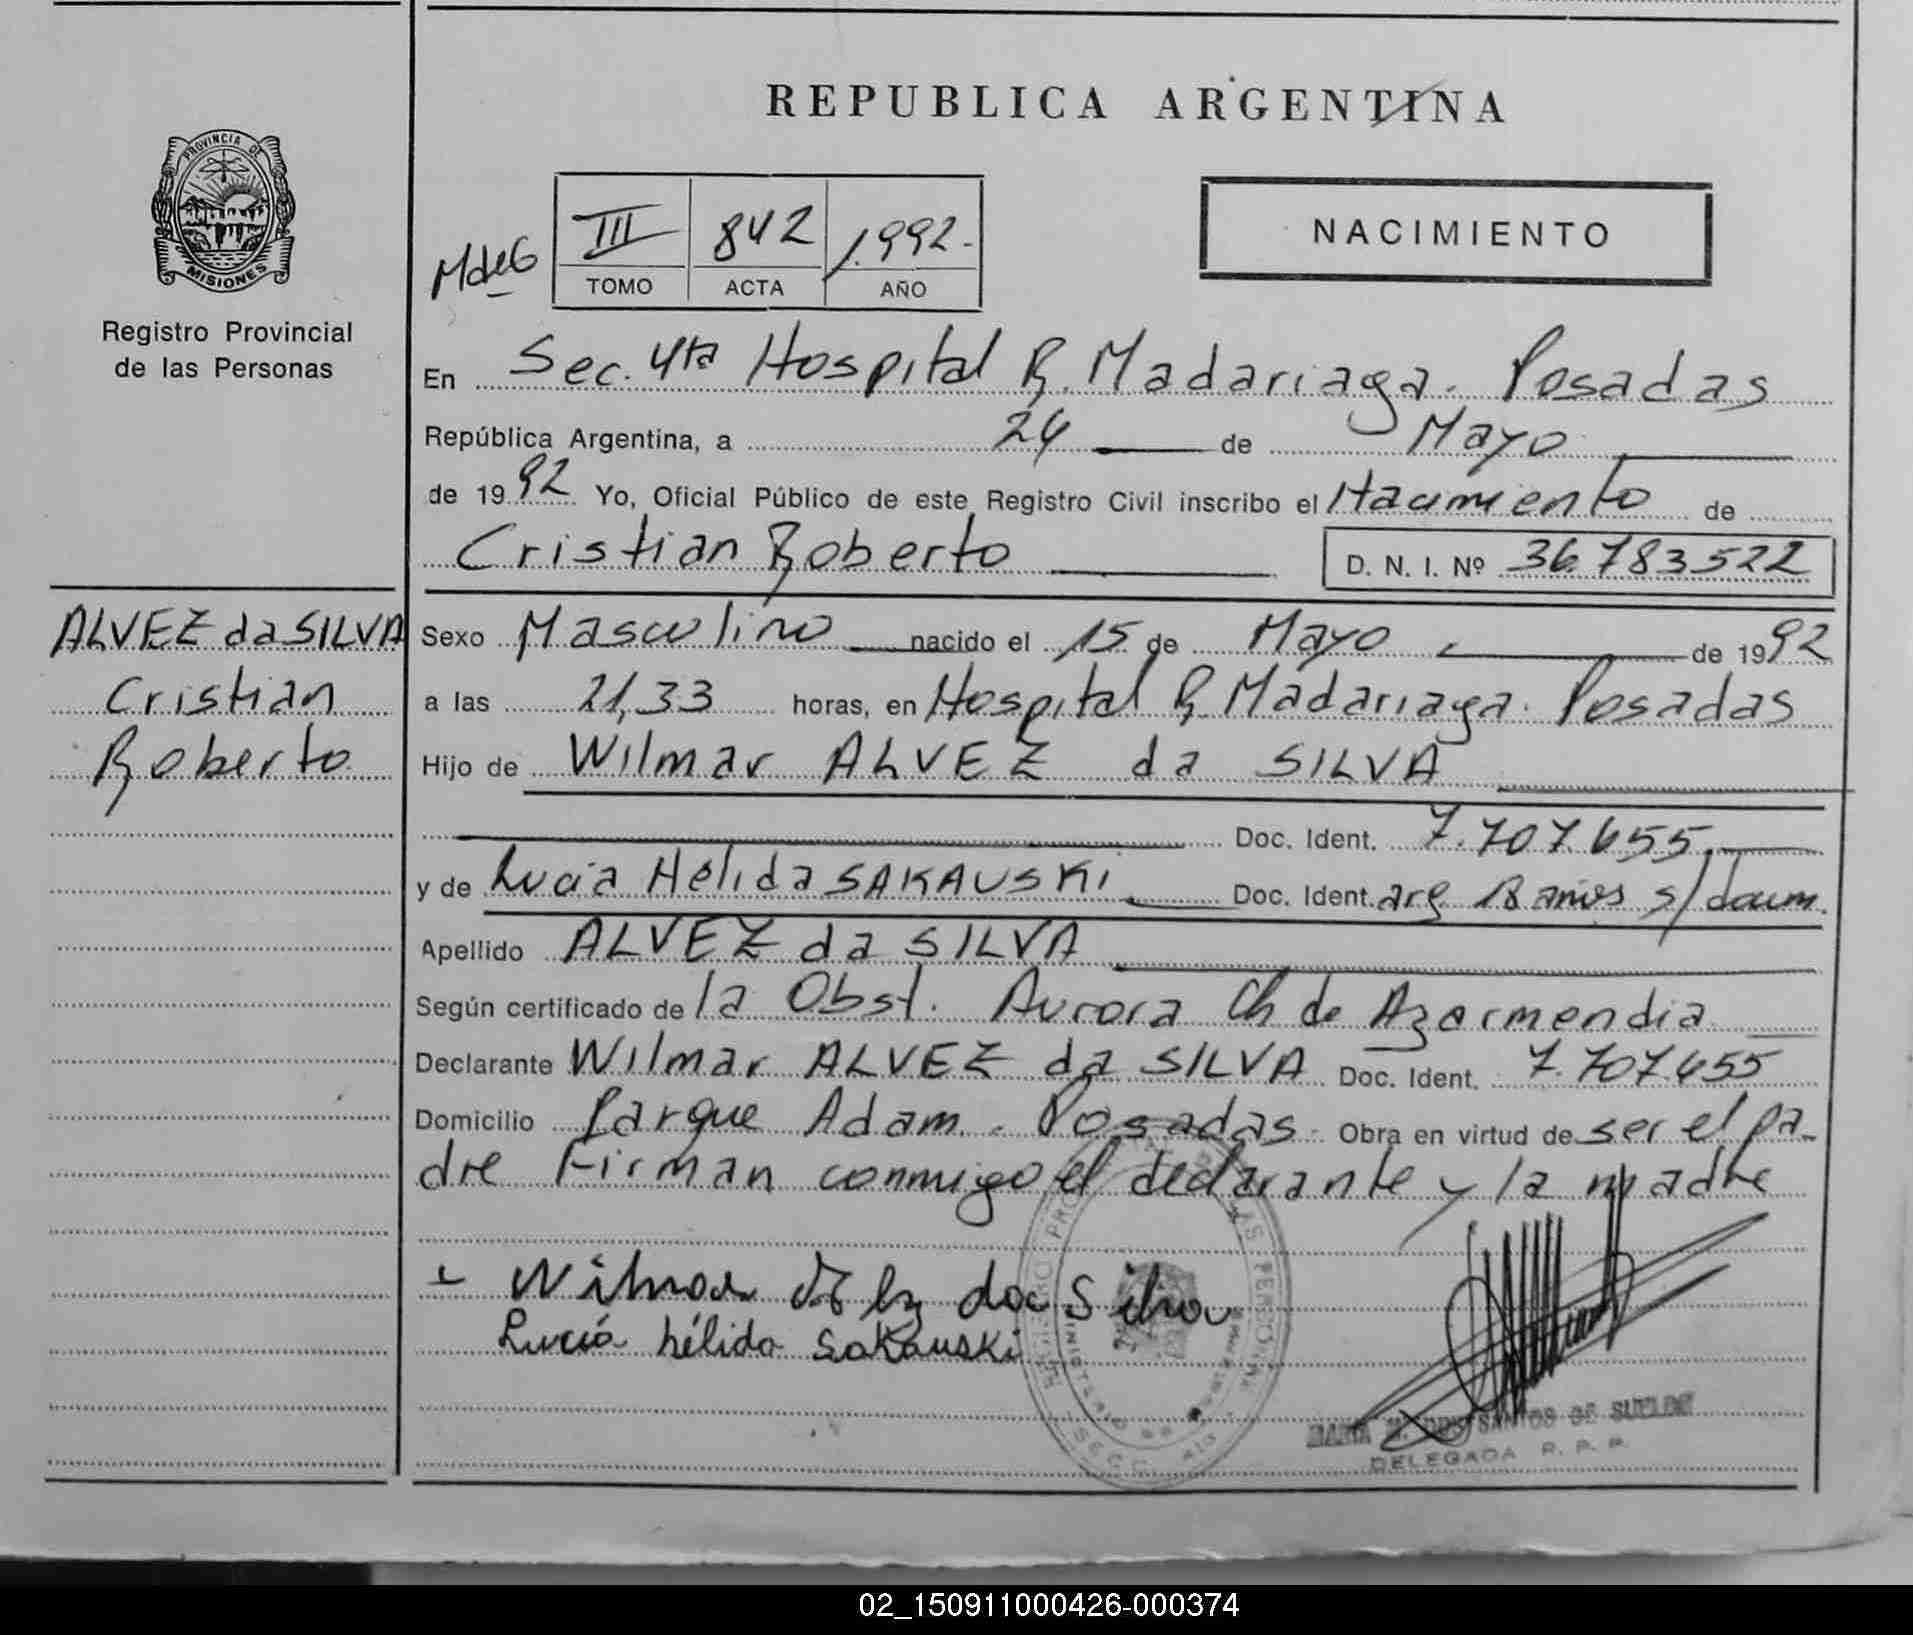 REPUBLICA ARGENTINA
PROVINCIA DE
MISIONES
Registro Provincial
de las Personas
NACIMIENTO
MdeG III 842 1.992.-
TOMO ACTA AÑO
En Sec. 4ta Hospital R. Madariaga. Posadas
República Argentina, a 24 de Mayo
de 1992 Yo, Oficial Público de este Registro Civil inscribo el Nacimiento de
Cristian Roberto D. N. I. Nº 36.783522
ALVEZ da SILVA
Cristian
Roberto
Sexo Masculino nacido el 15 de Mayo de 1992
a las 21,33 horas, en Hospital R. Madariaga. Posadas
Hijo de Wilmar ALVEZ da SILVA
Doc. Ident. 7.707.655
y de Lucia Hélida SAKAUSKI Doc. Ident. arg 18 años s/docum.
Apellido ALVEZ da SILVA
Según certificado de la Obst. Aurora Ch de Azarmendia
Declarante Wilmar ALVEZ da SILVA Doc. Ident. 7.707.655
Domicilio Parque Adam. Posadas Obra en virtud de ser el pa-
dre Firman conmigo el declarante y la madre
Wilmar da Silva
Lucía hélida Sakauski
DOS SANTOS DE
DELEGADA R. P. P.
02_150911000426-000374